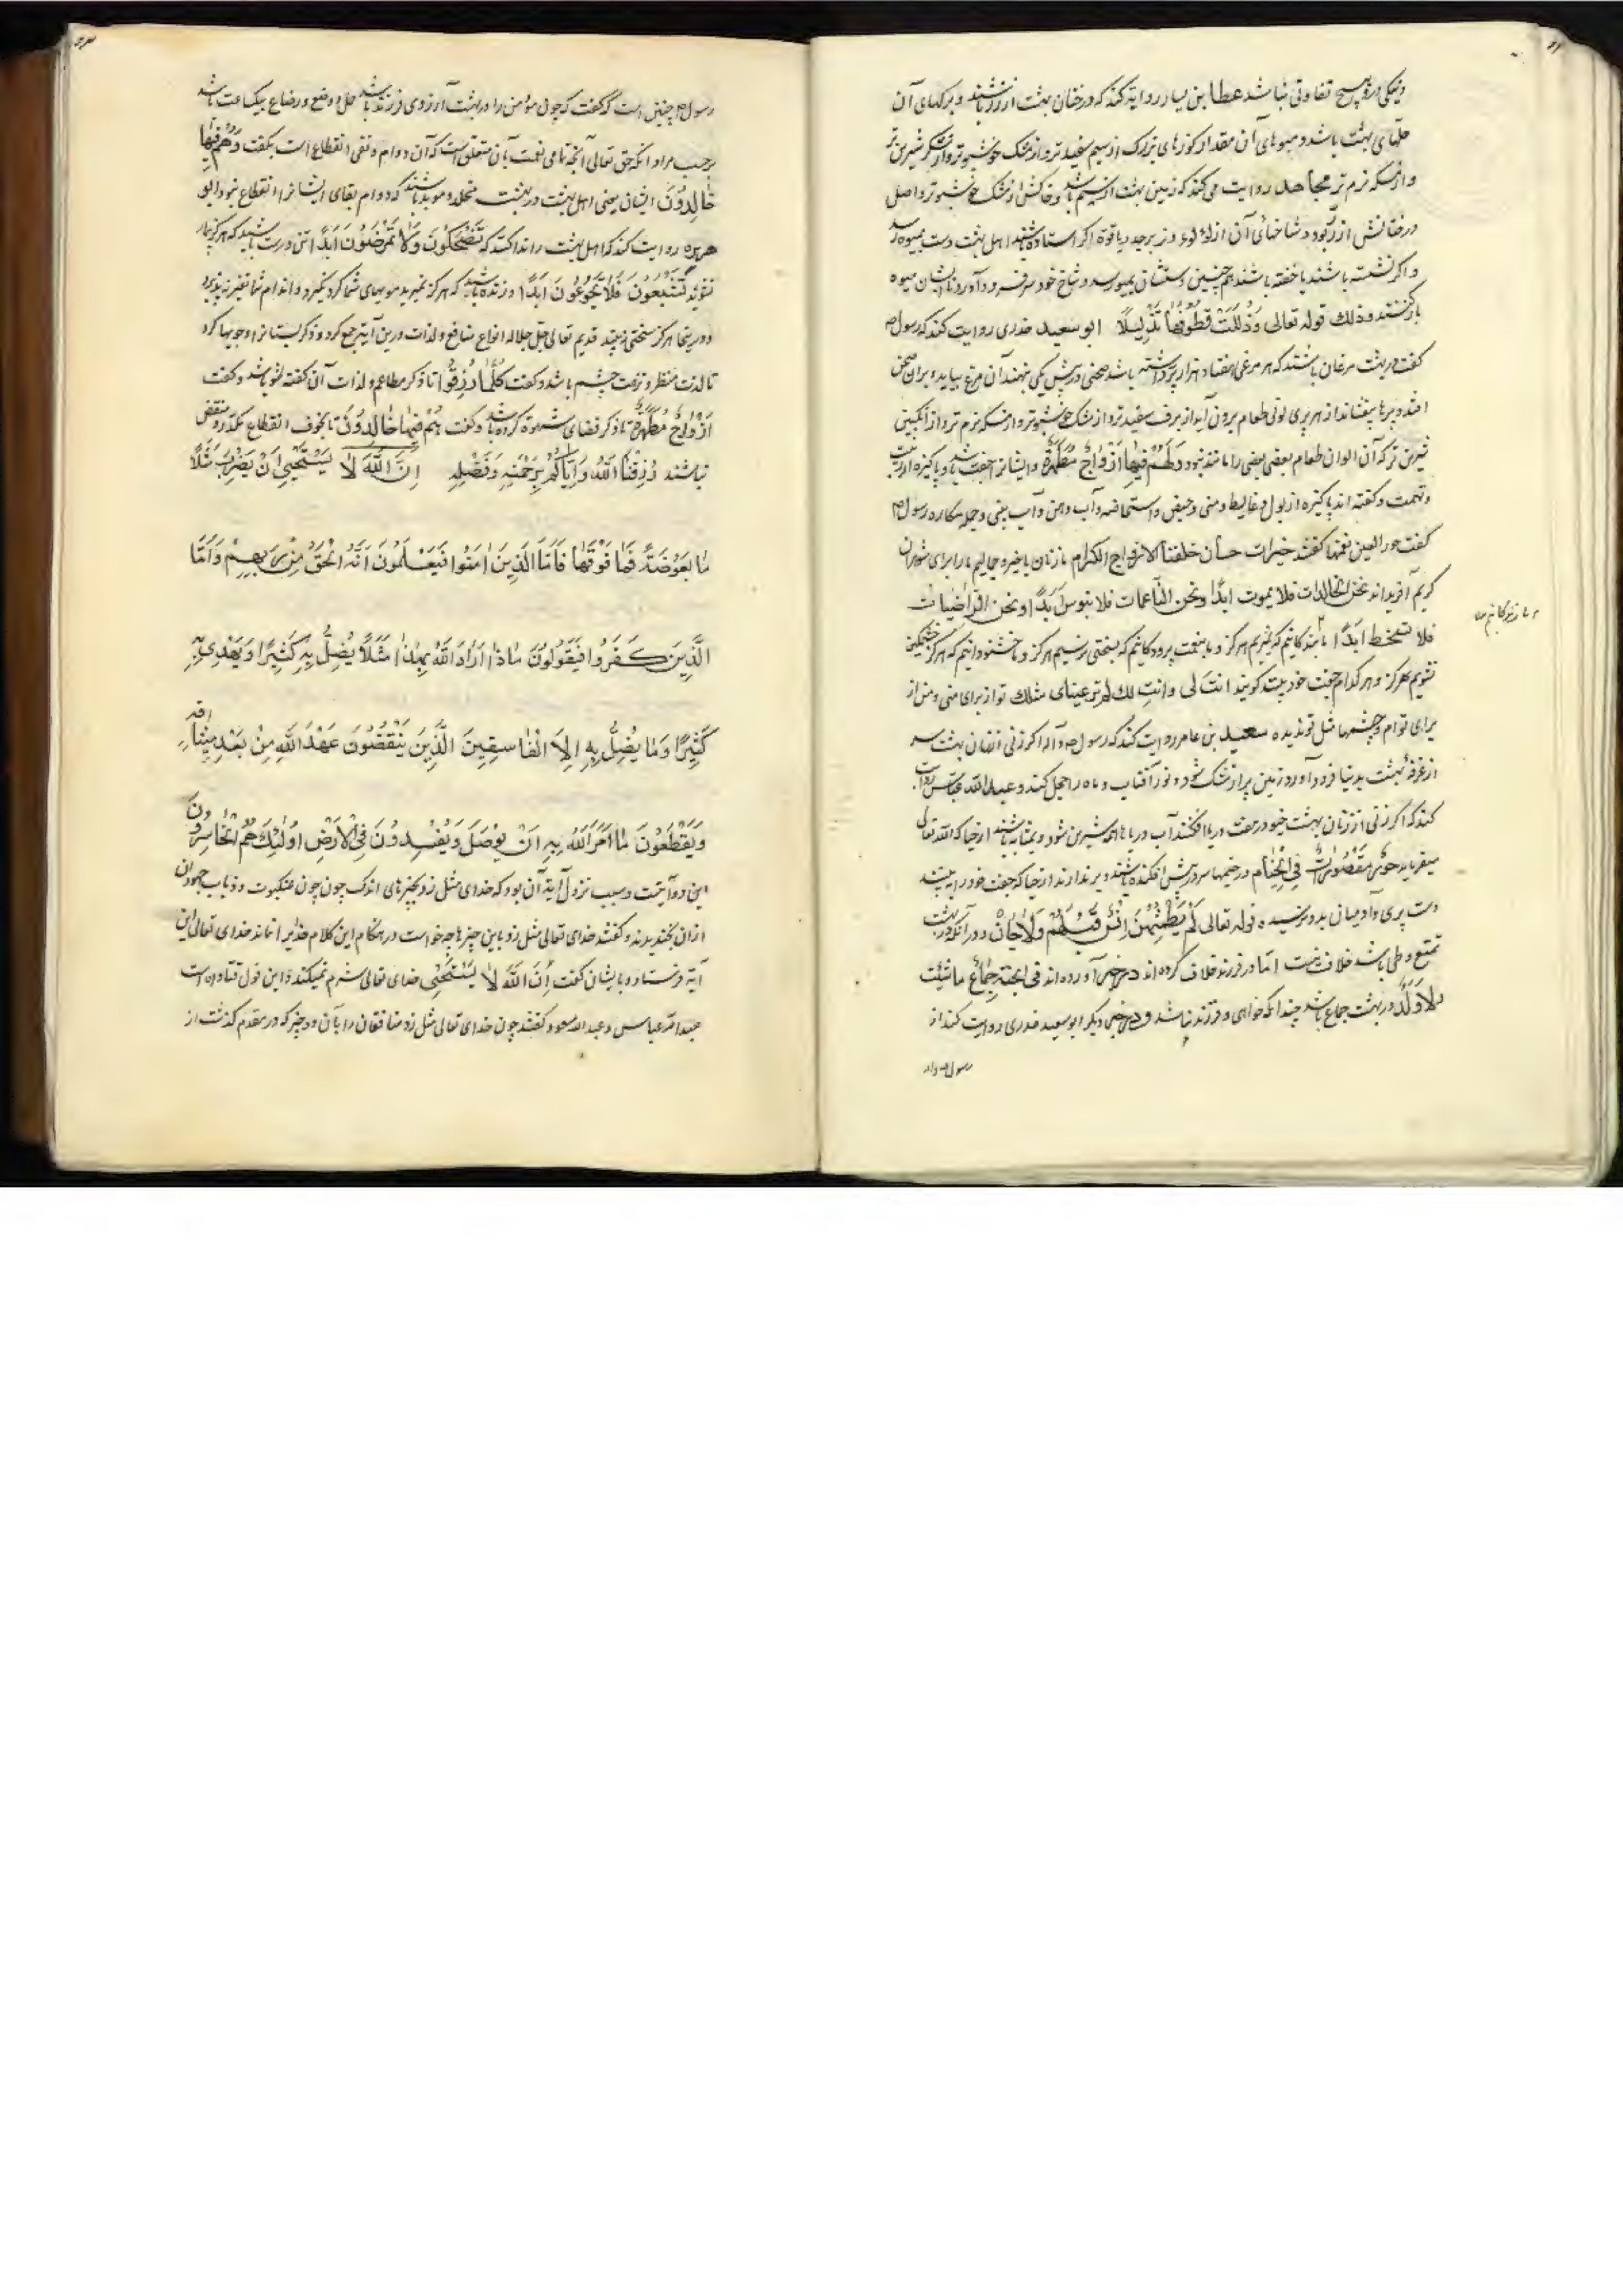 و نیکی در او هیچ تفاوتی نباشد عطا بن یسار روایة کند که درختان بهشت از زر باشند و برکهای آن
حلهای بهشت باشد و میوهای آن مقدار کوزهای بزرک از سیم سفیدتر و از مشک خوشبوتر و از شکر شیرین تر
و از مسکه نرم تر مجاهد روایت می کند که زمین بهشت از سیم باشد و خاکش از مشک خوشبوتر و اصل
درختانش از زر بود و شاخهای آن از لؤلوء و زبرجد و یاقوة اکر استاده باشند اهل بهشت دست بمیوه رسد
و اکر نشسته باشند یا خفته باشند همچنین دستشان بمیوه رسد و شاخ خود سر فرود آورد تا ایشان میوه
باز کنند و ذلك قوله تعالی وَذُلِّلَتْ قُطُوفُهَا تَذْلِيلًا ابو سعید خدری روایت کند که رسول ص
کفت در بهشت مرغان باشند که هر مرغی هفتاد هزار پر داشته باشد صحنی در پیش یکی بنهند آن مرغ بیاید و بر آن صحن
افتد و پرها بیفشاند از هر پری لونی طعام برون آید از برف سفیدتر و از مشک خوشبوتر و از مسکه نرم تر و از انکبین
شیرین تر که آن الوان طعام بعضی بعضی را مانند نبود وَلَهُمْ فِيهَا أَزْوَاجٌ مُطَهَّرَةٌ و ایشانرا جفت باشد و پاکیزه از ریبت
و تهمت و کفته اند پاکیزه از بول و غایط و منی و حیض و استحاضه و آب دهن و آب بینی و جمله مکاره رسول ص
کفت حور العین نغمها کفتند خیرات حسان خلقنا لازواج الکرام ما زنان باخیر و جمالیم ما را برای شوهران
کریم آفریده اند نحن الخالدات فلا یموت ابدًا و نحن الناعمات فلا نبوس ابدًا و نحن الراضیات
فلا نسخط ابدًا ما بندکانیم که نمیریم هرکز و ما بنعمت پروردکانیم که بسختی نرسیم هرکز و ما خشنودانیم که هرکز خشمکین
نشویم هرکز و هر کدام جفت خود بیند کویند انت لی و انت لك لم تر عینای مثلك تو از برای منی و من از
برای توام و چشمها مثل تو ندیده سعید بن عامر روایت کند که رسول ص و آله اکر زنی از زنان بهشت سر
از غرفهٔ بهشت بدنیا فرود آورد زمین پر از مشک شود و نور آفتاب و ماه را خجل کند و عبد الله عباس روایت
کند که اکر زنی از زنان بهشت خیو در هفت دریا افکند آب دریاها همه شیرین شود و بمثابه باشند از حیا که الله تعالی
میفرماید حُورٌ مَقْصُورَاتٌ فِي الْخِيَامِ در خیمها سر در پیش افکنده باشند و بر ندارند از حیا که جفت خود را ببینند
دست پری و آدمیان بدو نرسیده قوله تعالی لَمْ يَطْمِثْهُنَّ إِنْسٌ قَبْلَهُمْ وَلَا جَانٌّ و در آنکه در بهشت
تمتع و طی باشد خلاف نیست امّا در فرزند خلاف کرده اند در خبر آورده اند فی الجنة جماع ما شئت
ولا وَلَد در بهشت جماع باشد چندانکه خواهی و فرزند نباشد و در خبر دیکر ابو سعید خدری روایت کند از
رسول ص و آله
رسول ص چنین است که کفت که چون مؤمن را در بهشت آرزوی فرزند باشد حمل و وضع و رضاع بیکساعت باشد
برحسب مراد آنکه حق تعالی آنچه تمامی نعمت بآن متعلق است که آن دوام و نفی انقطاع است بکفت وَهُمْ فِيهَا
خَالِدُونَ ایشان یعنی اهل بهشت در بهشت مخلد و موبد باشند که دوام بقای ایشانرا انقطاع نبود ابو
هریره روایت کند که اهل بهشت را ندا کنند که تَضْحَكُونَ وَلَا تَمْرَضُونَ أَبَدًا تن درست باشید که هرکز بیمار
نشوید تَشْبَعُونَ فَلَا تَجُوعُونَ أَبَدًا و زنده باشید که هرکز نمیرید مویهای شما کرد نکیرد و اندام شما تغیر نپذیرد
و در پنجا هرکز سختی نبینید قدیم تعالی جل جلاله انواع منافع و لذات درین آیه جمع کرد و ذکر بستانها و جویها کرد
تا لذت منظر و نزهت چشم باشد و کفت كُلَّمَا رُزِقُوا تا ذکر مطاعم و لذات آن کفته شود باشد و کفت
أَزْوَاجٌ مُطَهَّرَةٌ تا ذکر قضای شهوة کرده باشد و کفت هُمْ فِيهَا خَالِدُونَ تا بخوف انقطاع مکدر و منغض
نباشند رُزِقْنَا اللهُ وَإِيَّاكُمْ بِرَحْمَتِهِ وَفَضْلِهِ إِنَّ اللَّهَ لَا يَسْتَحْيِي أَنْ يَضْرِبَ مَثَلًا
مَا بَعُوضَةً فَمَا فَوْقَهَا فَأَمَّا الَّذِينَ آمَنُوا فَيَعْلَمُونَ أَنَّهُ الْحَقُّ مِنْ رَبِّهِمْ وَأَمَّا
الَّذِينَ كَفَرُوا فَيَقُولُونَ مَاذَا أَرَادَ اللَّهُ بِهَذَا مَثَلًا يُضِلُّ بِهِ كَثِيرًا وَيَهْدِي بِهِ
كَثِيرًا وَمَا يُضِلُّ بِهِ إِلَّا الْفَاسِقِينَ الَّذِينَ يَنْقُضُونَ عَهْدَ اللَّهِ مِنْ بَعْدِ مِيثَاقِهِ
وَيَقْطَعُونَ مَا أَمَرَ اللَّهُ بِهِ أَنْ يُوصَلَ وَيُفْسِدُونَ فِي الْأَرْضِ أُولَئِكَ هُمُ الْخَاسِرُونَ
این دو آیتست و سبب نزول آیة آن بود که خدای مثل زد بچیزهای اندک چون چون عنکبوت و ذباب جهودان
ازان بخندیدند و کفتند خدای تعالی مثل زد باین چیزها چه خواست در هنکام این کلام خدایرا نماند خدای تعالی این
آیة فرستاد و بایشان کفت أَنَّ اللَّهَ لَا يَسْتَحْيِي خدای تعالی شرم نمیکند و این قول قتاده است
عبد الله عباس و عبد الله مسعود کفتند چون خدای تعالی مثل زد منافقان را بآن دو چیز که در مقدم کذشت از